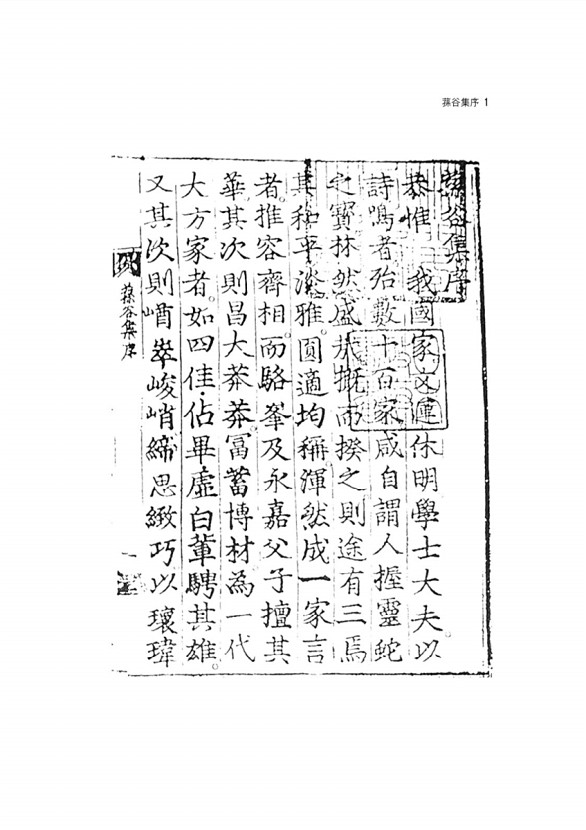 蓀谷集序 1
蓀谷集序
恭惟 我國家文運休明學士大夫以
詩鳴者殆數十百家咸自謂人握靈蛇
之寶林然盛哉概而揆之則途有三焉
其和平淡雅圓適均稱渾然成一家言
者推容齋相而駱峯及永嘉父子擅其
華其次則昌大莽莽富蓄博材為一代
大方家者如四佳佔畢虛白輩騁其雄
又其次則崷崒峻峭締思緻巧以瓌瑋
蓀谷集序
一